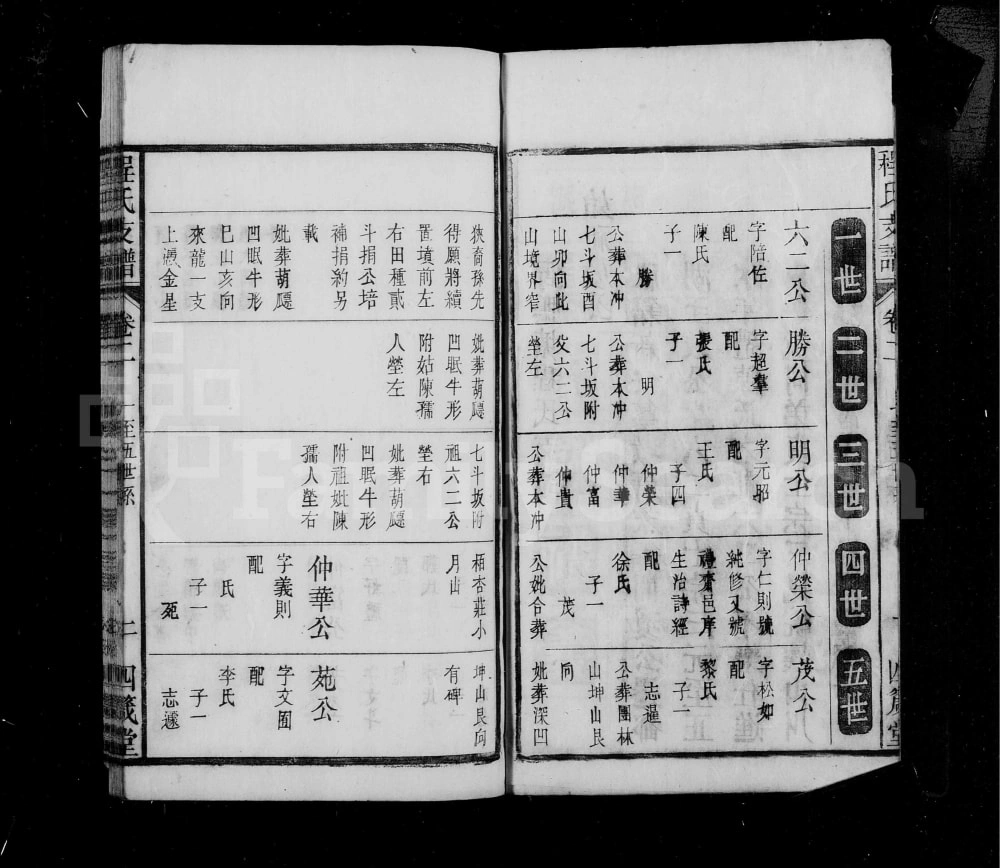 程氏支譜
卷二
四箴堂
一世
六二公
字陪佐
配
陳氏
子一
勝
公葬本冲
七斗坂酉
山卯向此
山境界窄
狹裔孫先
得願將續
置墳前左
右田種貳
斗捐公培
補捐約另
載
妣葬葫廳
凹眠牛形
巳山亥向
來龍一支
上憑金星
二世
勝公
字超羣
配
張氏
子一
明
公葬本冲
七斗坂附
父六二公
塋左
妣葬葫廳
凹眠牛形
附姑陳孺
人塋左
三世
明公
字元昭
配
王氏
子四
仲榮
仲華
仲富
仲貴
公葬本冲
七斗坂附
祖六二公
塋右
妣葬葫廳
凹眠牛形
附祖妣陳
孺人塋右
四世
仲榮公
字仁則號
純修又號
禮齋邑庠
生治詩經
配
徐氏
子一
茂
公妣合葬
栢杏莊小
月山
仲華公
字義則
配
氏
子一
苑
五世
茂公
字松如
配
黎氏
子一
志暹
公葬團林
山坤山艮
向
妣葬深凹
坤山艮向
有碑
苑公
字文囿
配
李氏
子一
志遜
程氏支譜
卷二
一至五世系
二
四箴堂